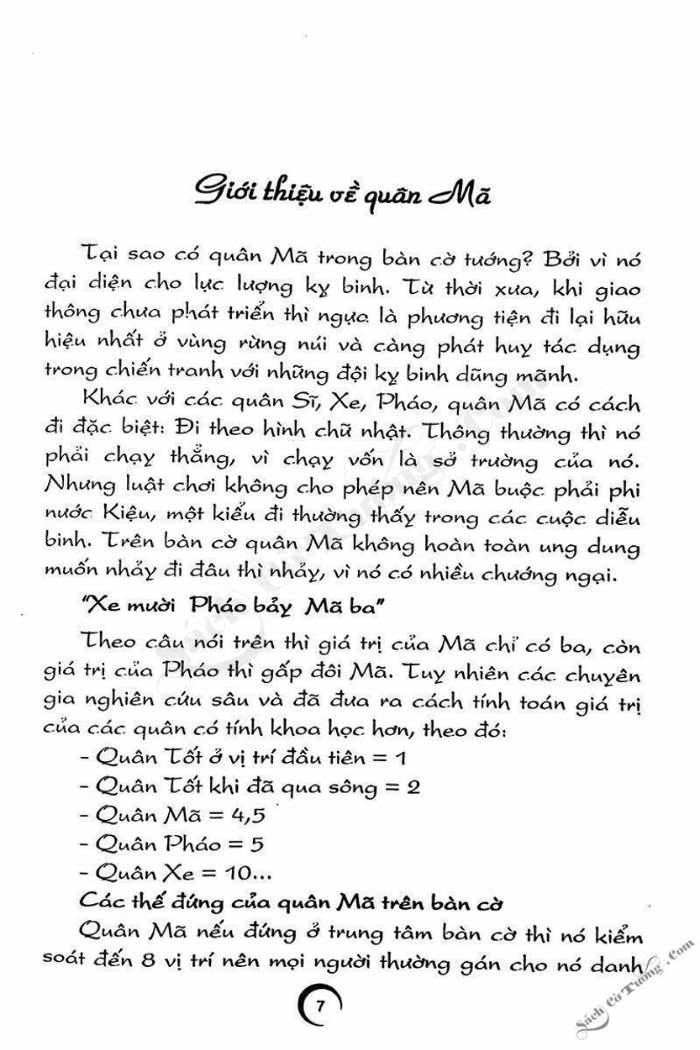 Giới thiệu về quân Mã
Tại sao có quân Mã trong bàn cờ tướng? Bởi vì nó
đại diện cho lực lượng kỵ binh. Từ thời xưa, khi giao
thông chưa phát triển thì ngựa là phương tiện đi lại hữu
hiệu nhất ở vùng rừng núi và càng phát huy tác dụng
trong chiến tranh với những đội kỵ binh dũng mãnh.
Khác với các quân Sĩ, Xe, Pháo, quân Mã có cách
đi đặc biệt: Đi theo hình chữ nhật. Thông thường thì nó
phải chạy thẳng, vì chạy vốn là sở trường của nó.
Nhưng luật chơi không cho phép nên Mã buộc phải phi
nước Kiệu, một kiểu đi thường thấy trong các cuộc diễu
binh. Trên bàn cờ quân Mã không hoàn toàn ung dung
muốn nhảy đi đâu thì nhảy, vì nó có nhiều chướng ngại.
"Xe mười Pháo bảy Mã ba"
Theo câu nói trên thì giá trị của Mã chỉ có ba, còn
giá trị của Pháo thì gấp đôi Mã. Tuy nhiên các chuyên
gia nghiên cứu sâu và đã đưa ra cách tính toán giá trị
của các quân có tính khoa học hơn, theo đó:
- Quân Tốt ở vị trí đầu tiên = 1
- Quân Tốt khi đã qua sông = 2
- Quân Mã = 4,5
- Quân Pháo = 5
- Quân Xe = 10...
Các thế đứng của quân Mã trên bàn cờ
Quân Mã nếu đứng ở trung tâm bàn cờ thì nó kiểm
soát đến 8 vị trí nên mọi người thường gán cho nó danh
7
Sách Cờ Tướng .Com